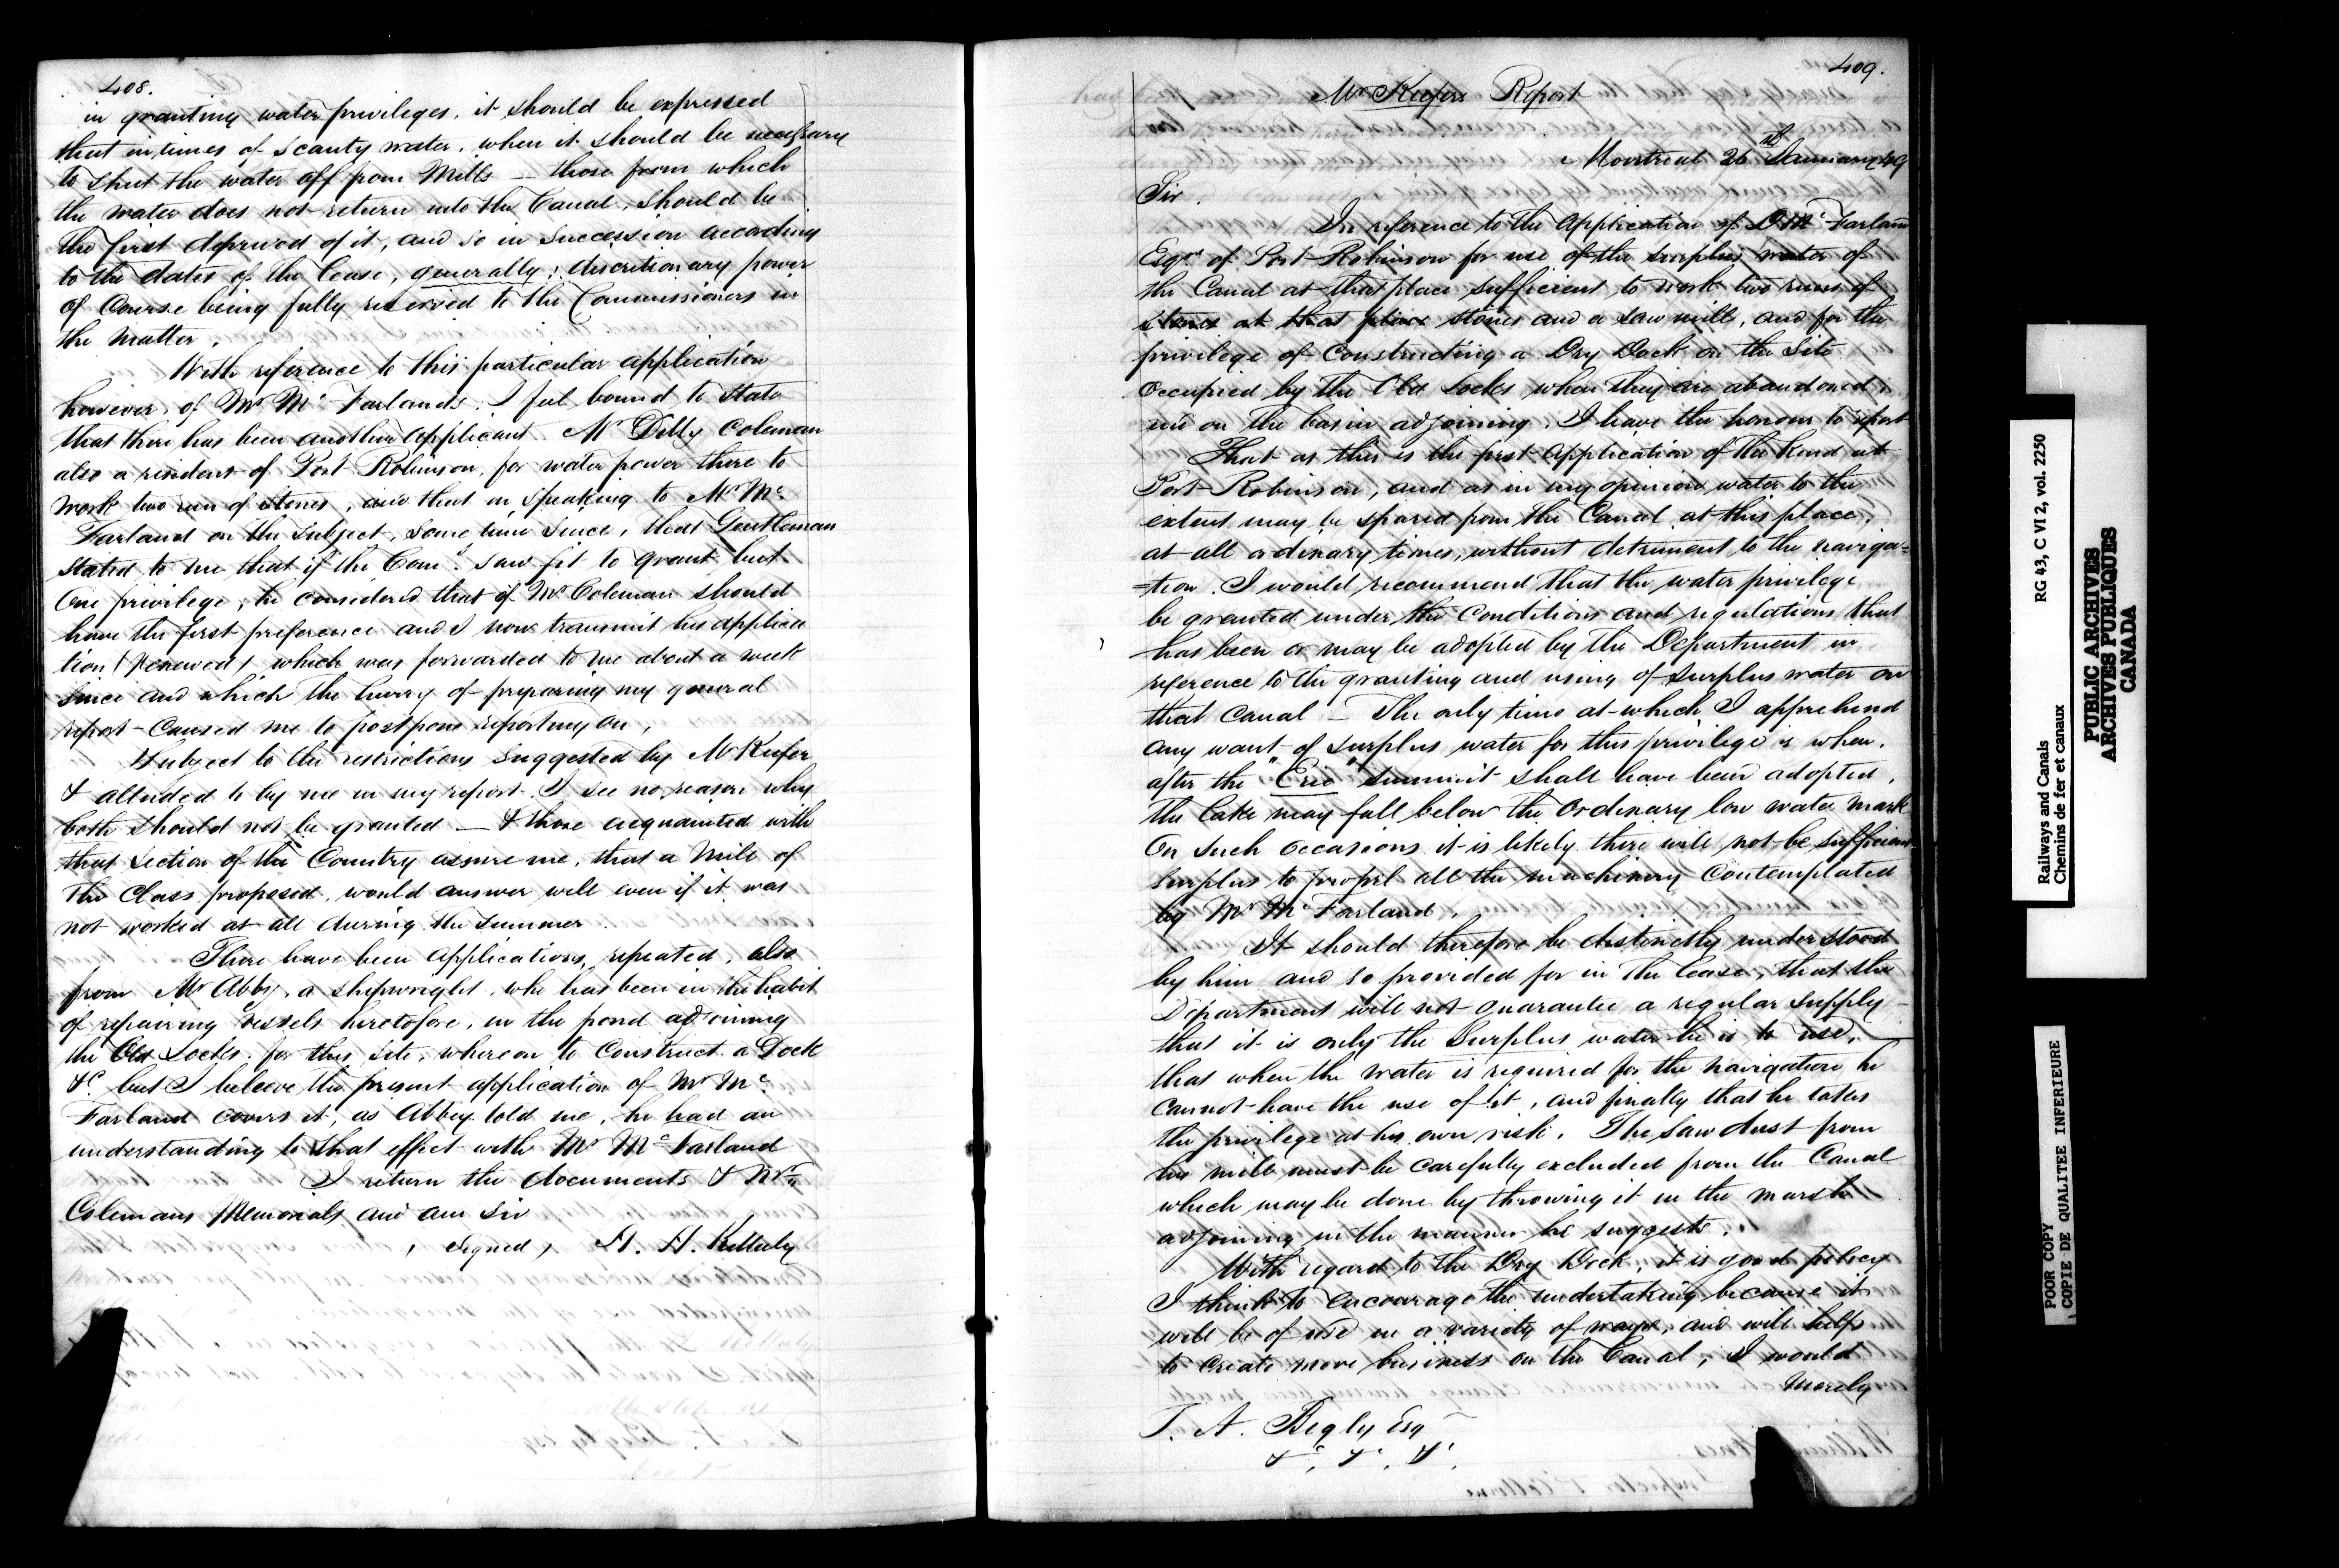 408.
in granting water privileges, it should be expressed
that in times of scanty water, when it should be necessary
to shut the water off from Mills — those from which
the water does not return into the Canal, should be
the first deprived of it, and so in succession according
to the dates of the lease, generally; discretionary power
of Course being fully reserved to the Commissioners in
the matter.
With reference to this particular application
however, of Mr Mc Farlands, I feel bound to state
that there has been another applicant Mr Dilly Coleman
also a resident of Port Robinson, for water power there to
work two run of stones, and that in speaking to Mr Mc
Farland on the subject, some time since, that Gentleman
stated to me that if the Comrs. saw fit to grant but
One privilege, he considered that of Mr Coleman should
have the first preference and I now transmit his applica
tion (renewed) which was forwarded to me about a week
since and which the hurry of preparing my general
report caused me to postpone reporting on,
Subject to the restrictions suggested by Mr Keefer
& alluded to by me in my report, I see no reason why
both should not be granted — & those acquainted with
that section of the Country assure me, that a Mill of
the Class proposed, would answer well even if it was
not worked at all during the summer.
There have been applications, repeated, also
from Mr Abby, a shipwright, who has been in the habit
of repairing vessels heretofore, in the pond adjoining
the Old Locks, for this site, whereon to Construct a Dock
&c but I beleeve the present application of Mr Mc
Farland covers it, as Abbey told me, he had an
understanding to that effect with Mr Mc Farland
I return the documents & Mr
Colemans Memorials and am Sir
, signed, H. H. Killaly
409.
Mr Keefers Report
Montreal 26th January 49
Sir.
In reference to the Application of D Mc Farland
Esqr. of Port Robinson for use of the surplus water of
the Canal at that place sufficient to work two runs of
stones at that place stones and a saw mill, and for the
privilege of Constructing a Dry Dock on the Site
occupied by the Old Locks when they are abandoned,
and on the basin adjoining, I have the honour to report
That as this is the first application of the kind at
Port Robinson, and as in my opinion, water to the
extent may be spared from the Canal at this place,
at all ordinary times, without detriment to the naviga=
=tion. I would recommend that the water privilege
be granted under the Conditions and regulations that
has been or may be adopted by the Department in
reference to the granting and using of surplus water on
that Canal — The only time at which I apprehend
any want of surplus water for this privilege is when,
after the "Erie" summit shall have been adopted,
the Lake may fall below the Ordinary low water mark
On such occasions it is likely there will not be sufficient
surplus to propel all the machinery Contemplated
by Mr Mc Farland,
It should therefore be distinctly understood
by him and so provided for in the lease, that the
Department will not guarantee a regular supply –
that it is only the Surplus water he is to use, —
that when the water is required for the navigation he
cannot have the use of it, and finally that he takes
the privilege at his own risk. The Saw dust from
his mill must be carefully excluded from the Canal
which may be done by throwing it in the marsh
adjoining in the manner he suggests.
With regard to the Dry Dock, it is good policy
I think to encourage the undertaking because it
will be of use in a variety of ways, and will help
to create more business on the Canal, I would
Merely
T. A. Begly Esq
&c. &c. &c.
Railways and Canals
Chemins de fer et canaux
RG 43, C VI 2, vol. 2250
PUBLIC ARCHIVES
ARCHIVES PUBLIQUES
CANADA
POOR COPY
COPIE DE QUALITEE INFERIEURE